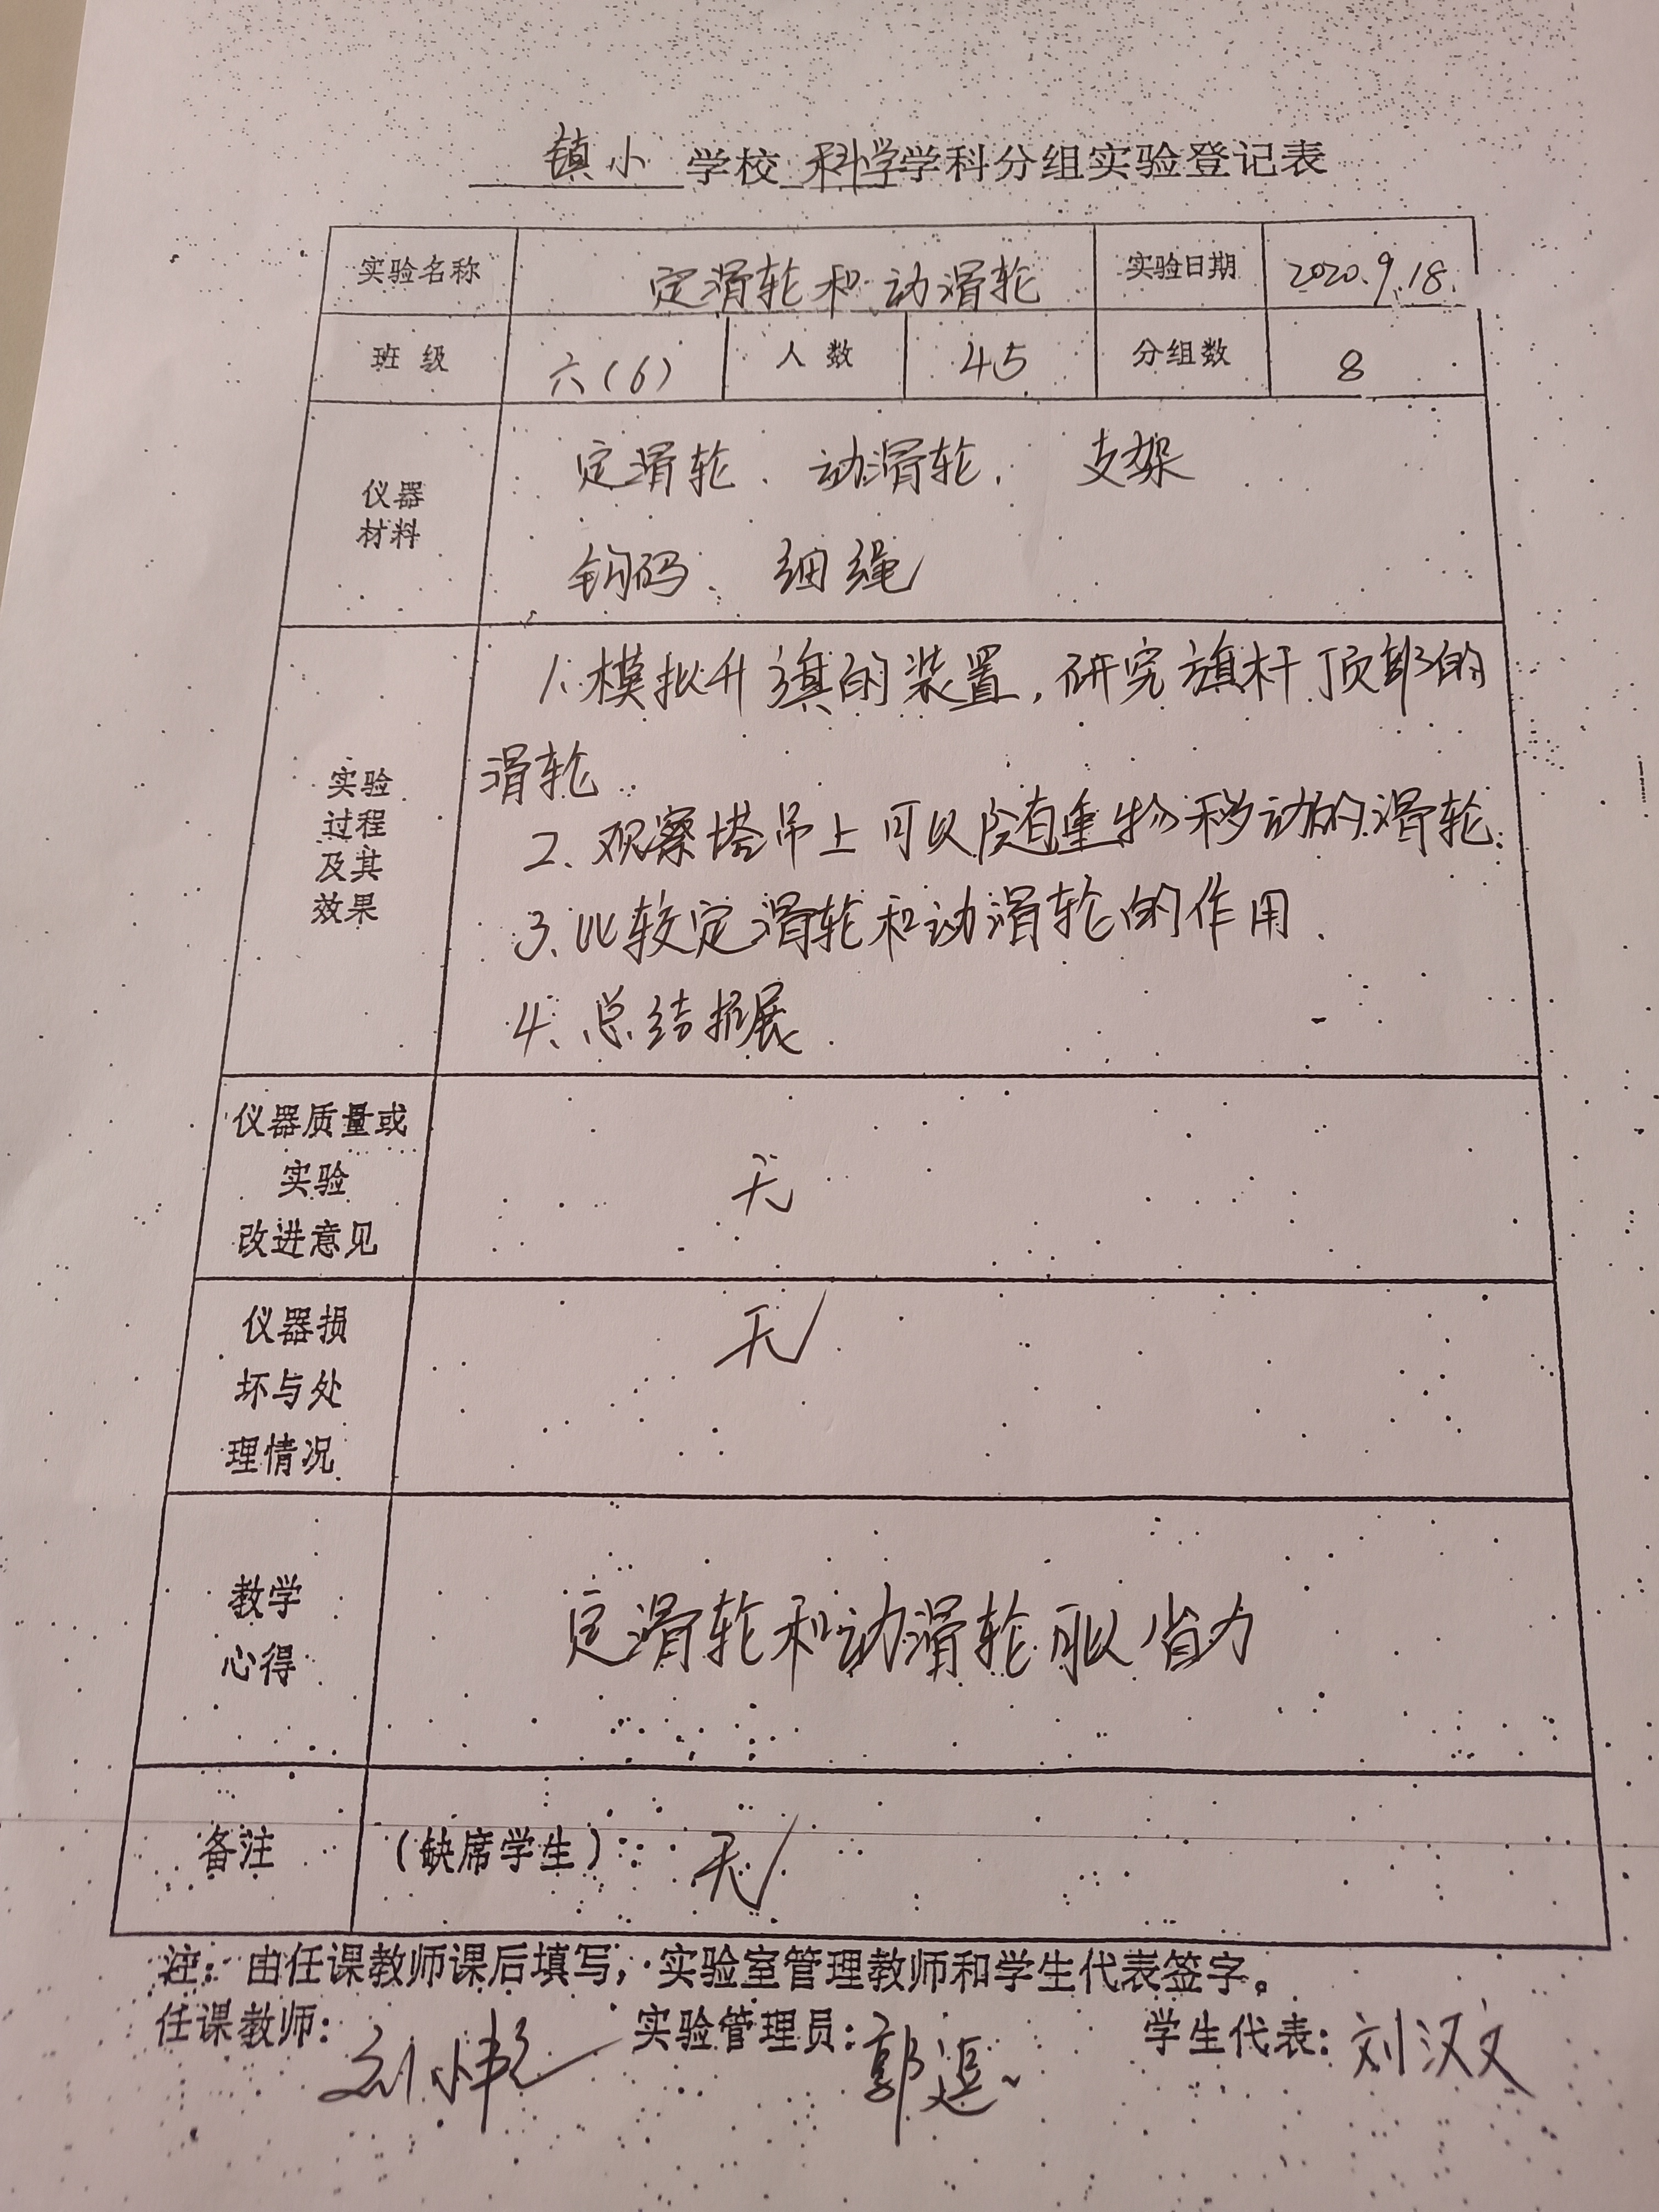 镇小 学校 科学学科分组实验登记表
实验名称 定滑轮和动滑轮 实验日期 2020.9.18.
班 级 六(6) 人 数 45 分组数 8
仪器
材料
定滑轮、动滑轮、 支架
钩码、 细绳
实验
过程
及其
效果
1.模拟升旗的装置,研究旗杆顶部的
滑轮.
2、观察塔吊上可以随着重物移动的滑轮.
3.比较定滑轮和动滑轮的作用.
4、总结拓展.
仪器质量或
实验
改进意见
无
仪器损
坏与处
理情况
无
教学
心得
定滑轮和动滑轮可以省力
备注 (缺席学生): 无
注:由任课教师课后填写,实验室管理教师和学生代表签字。
任课教师: 刘 实验管理员: 郭 学生代表: 刘汉文